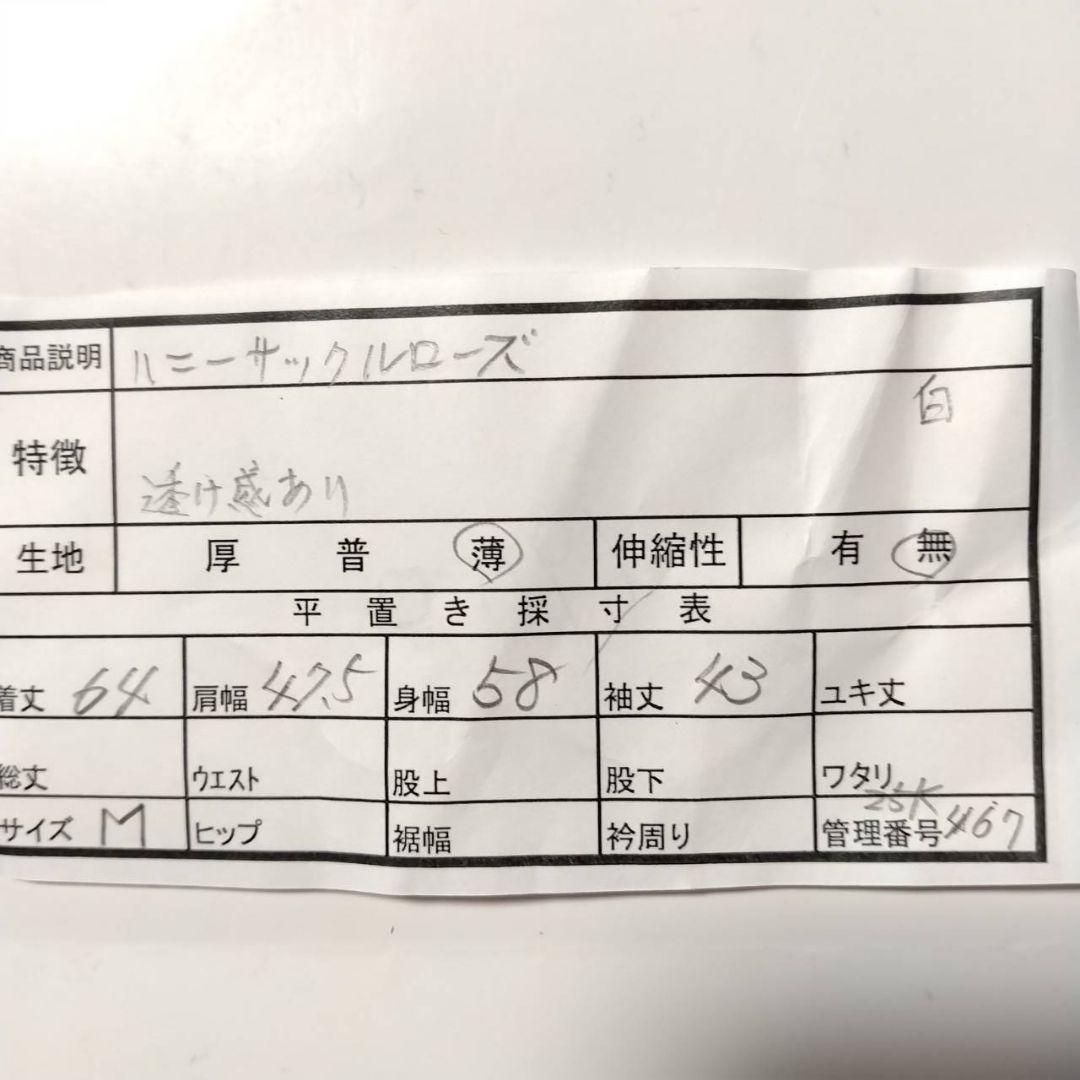 商品説明 ハニーサックルローズ
白
特徴
透け感あり
生地 厚 普 薄 伸縮性 有 無
平置き採寸表
着丈 64 肩幅 47.5 身幅 58 袖丈 43 ユキ丈
総丈 ウエスト 股上 股下 ワタリ
25K
サイズ M ヒップ 裾幅 衿周り 管理番号 467